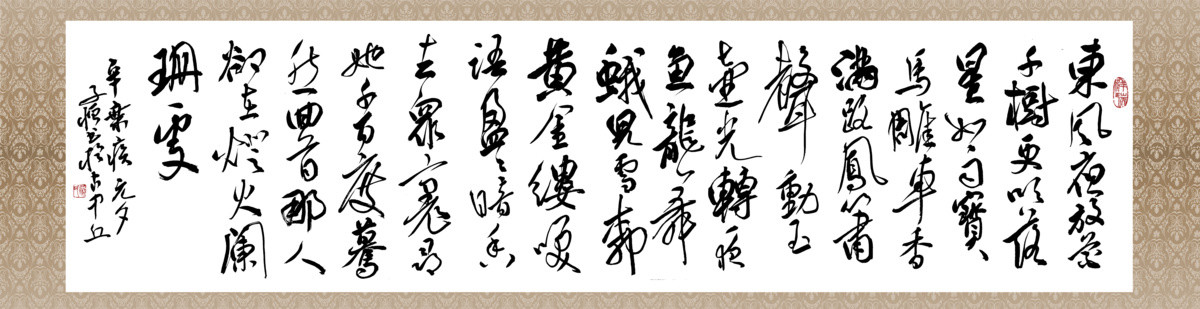 東風夜放花
千樹更吹落
星如雨寶
馬雕車香
滿路鳳簫
聲動玉
壺光轉夜
魚龍舞
蛾兒雪柳
黄金縷笑
語盈〻暗香
去眾裏尋
她千百度驀
然回首那人
卻在燈火闌
珊處
辛棄疾元夕